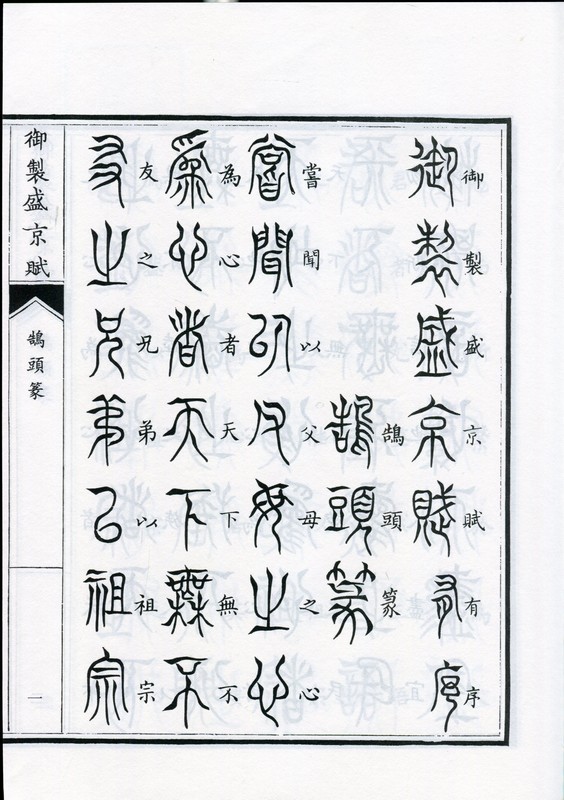 御製盛京賦有序
鵠頭篆
嘗聞以父母之心
為心者天下無不
友之兄弟以祖宗
御製盛京賦
鵠頭篆
一